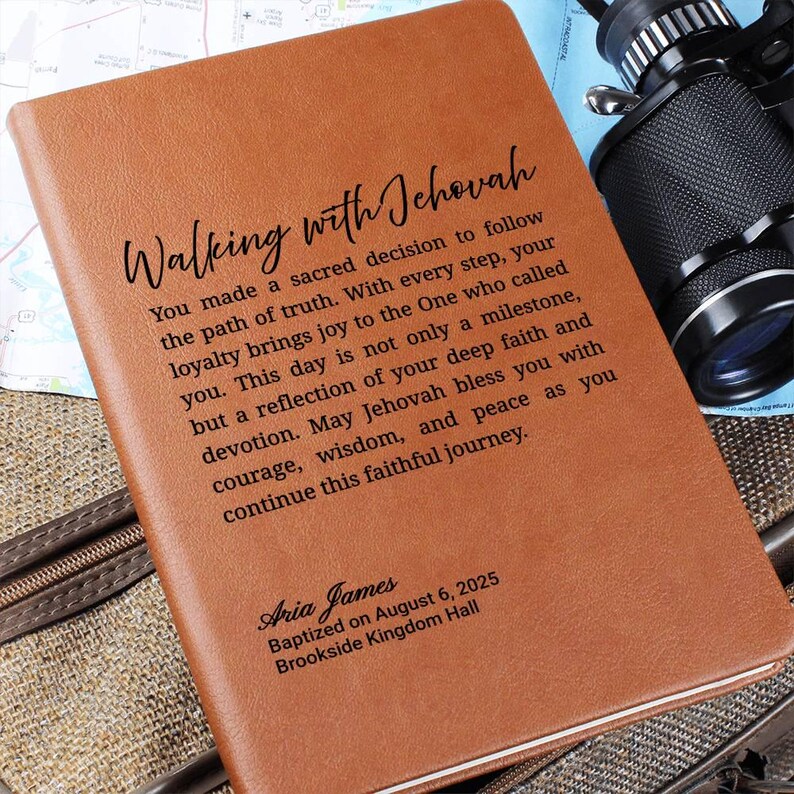 Walking with Jehovah
You made a sacred decision to follow
the path of truth. With every step, your
loyalty brings joy to the One who called
you. This day is not only a milestone,
but a reflection of your deep faith and
devotion. May Jehovah bless you with
courage, wisdom, and peace as you
continue this faithful journey.
Aria James
Baptized on August 6, 2025
Brookside Kingdom Hall
INTRACOASTAL